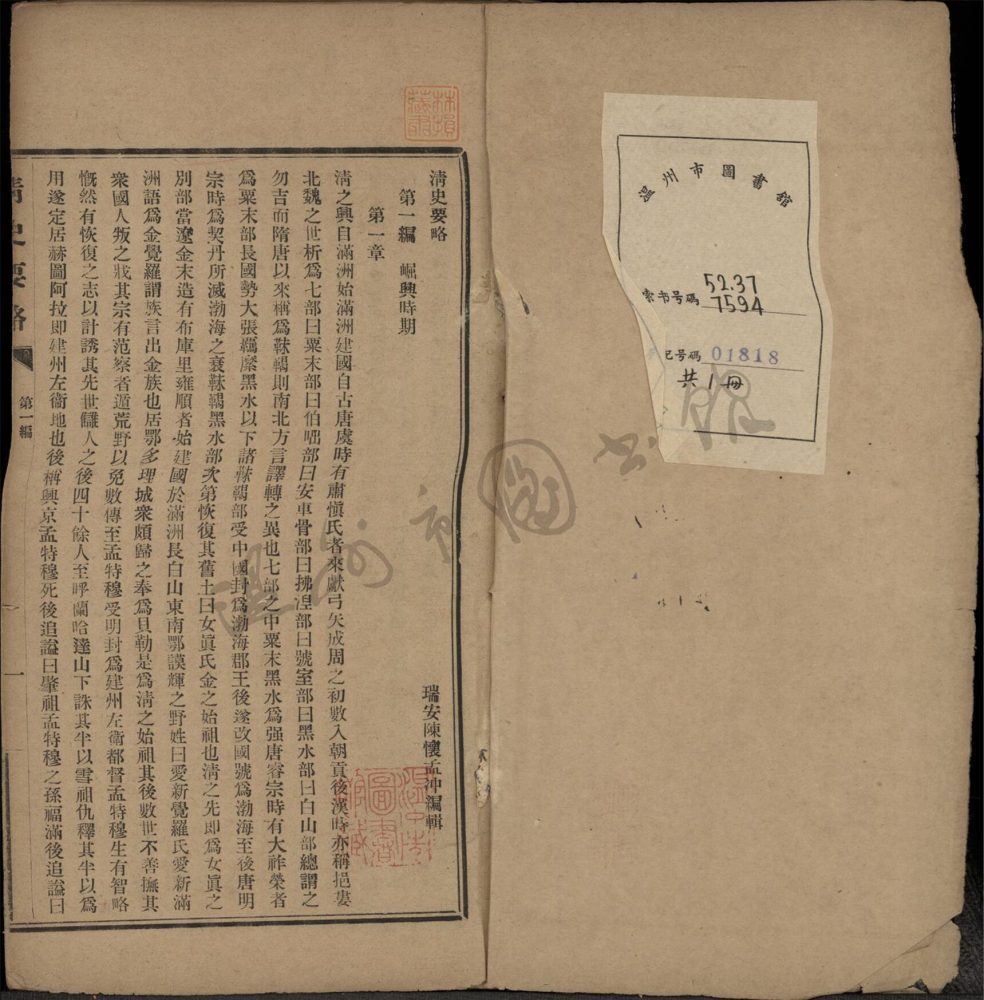 溫州市圖書館
索书号碼
52.37
7594
记号碼 01818
共1冊
清史要略
瑞安陳懷孟沖編輯
第一編 崛興時期
第一章
淸之興自滿洲始滿洲建國自古唐虞時有肅愼氏者來獻弓矢成周之初數入朝貢後漢時亦稱挹婁
北魏之世析爲七部曰粟末部曰伯咄部曰安車骨部曰拂湼部曰號室部曰黑水部曰白山部總謂之
勿吉而隋唐以來稱爲靺鞨則南北方言譯轉之異也七部之中粟末黑水爲强唐睿宗時有大祚榮者
爲粟末部長國勢大張羈縻黑水以下諸靺鞨部受中國封爲渤海郡王後遂改國號爲渤海至後唐明
宗時爲契丹所滅渤海之衰靺鞨黑水部次第恢復其舊土曰女眞氏金之始祖也淸之先即爲女眞之
別部當遼金末造有布庫里雍順者始建國於滿洲長白山東南鄂謨輝之野姓曰愛新覺羅氏愛新滿
洲語爲金覺羅謂族言出金族也居鄂多理城衆頗歸之奉爲貝勒是爲淸之始祖其後數世不善撫其
衆國人叛之戕其宗有范察者遁荒野以免數傳至孟特穆受明封爲建州左衞都督孟特穆生有智略
慨然有恢復之志以計誘其先世讎人之後四十餘人至呼蘭哈達山下誅其半以雪祖仇釋其半以爲
用遂定居赫圖阿拉即建州左衞地也後稱興京孟特穆死後追謚曰肇祖孟特穆之孫福滿後追謚曰
清史要略
第一編
一
溫州市圖書館